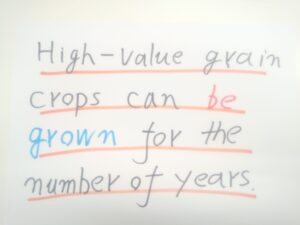 High-value grain
crops can be
grown for the
number of years.